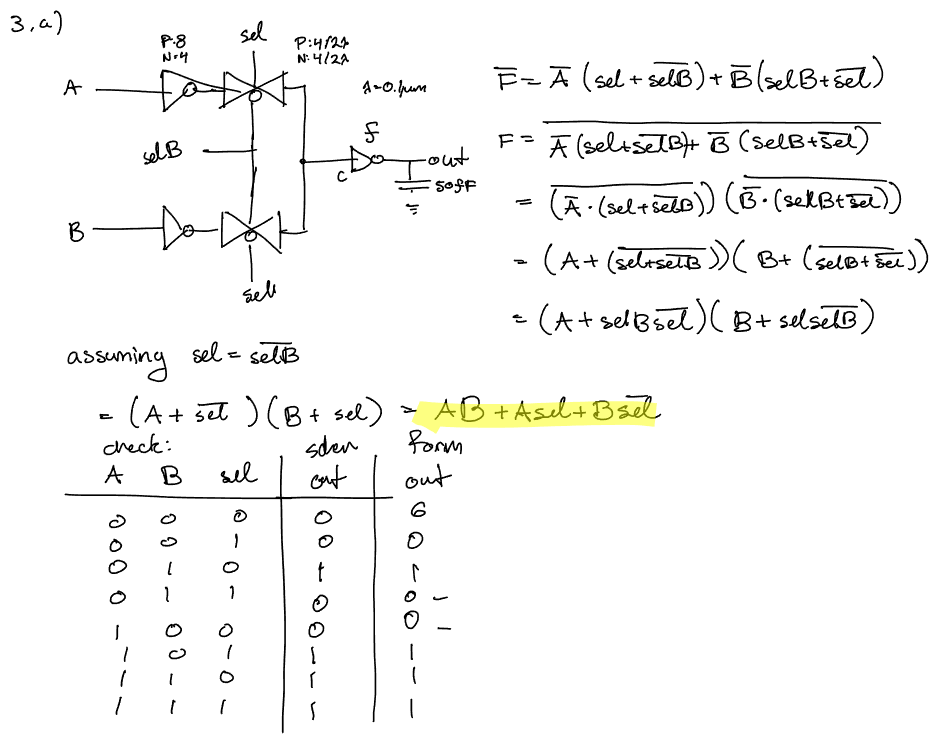 3.a)
P:8
N:4
sel
P:4/2λ
N:4/2λ
A
λ=0.1μm
selB
f
c
out
50fF
B
sel
F̅ = A̅ (sel + s̅e̅l̅B̅) + B̅ (selB + s̅e̅l̅)
F = \overline{A̅ (sel + s̅e̅l̅B̅) + B̅ (selB + s̅e̅l̅)}
= (\overline{A̅ · (sel + s̅e̅l̅B̅)}) (\overline{B̅ · (selB + s̅e̅l̅)})
= (A + (\overline{sel + s̅e̅l̅B̅})) ( B + (\overline{selB + s̅e̅l̅}))
= (A + selB s̅e̅l̅) ( B + sel s̅e̅l̅B̅)
assuming sel = s̅e̅l̅B̅
= (A + s̅e̅l̅) (B + sel) = AB + Asel + B s̅e̅l̅
check:
A B sel out out
form
0 0 0 0 0
0 0 1 0 0
0 1 0 1 1
0 1 1 0 0 –
1 0 0 0 0 –
1 0 1 1 1
1 1 0 1 1
1 1 1 1 1